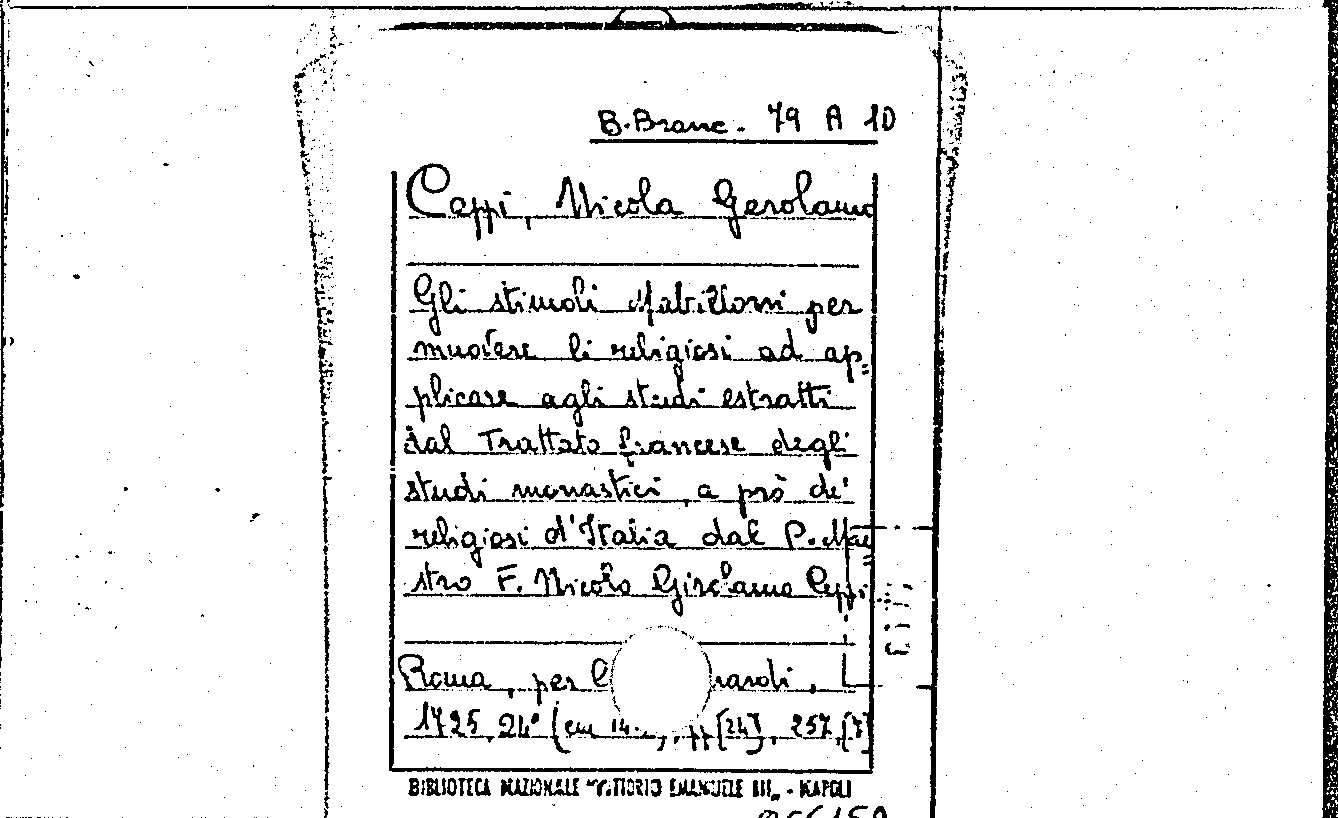 B. Branc. 79 A 10
Ceppi, Nicola Gerolamo
Gli stimoli Mabilloni per
muovere li religiosi ad ap=
plicare agli studi estratti
dal Trattato francese degli
studi monastici, a prò de'
religiosi d'Italia dal P. Mae=
stro F. Nicolò Girolamo Ceppi
Roma, per rardi,
1725, 24° (cm 14 pp [24], 257, [7]
BIBLIOTECA NAZIONALE "VITTORIO EMANUELE III" - NAPOLI